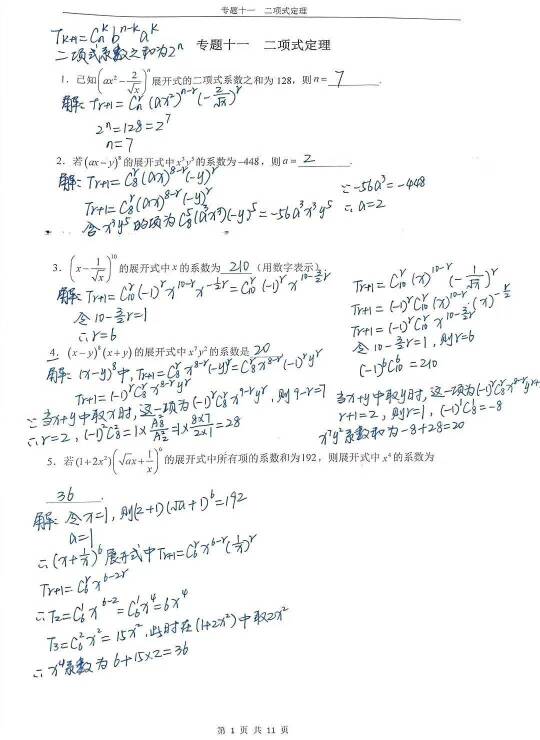 专题十一 二项式定理
Tk+1=Cn^k b^(n-k) a^k
二项式系数之和为2^n
专题十一 二项式定理
1. 已知(ax²-2/√x)^n展开式的二项式系数之和为128，则n=7.
解：Tr+1=Cn^r(ax²)^(n-r)(-2/√x)^r
2^n=128=2^7
n=7
2. 若(ax-y)^8的展开式中x³y^5的系数为-448，则a=2.
解：Tr+1=C8^r(ax)^(8-r)(-y)^r
Tr+1=C8^r(ax)^(8-r)(-y)^r
含x³y^5的项为C8^5(a³x³)(-y)^5=-56a³x³y^5
∵-56a³=-448
∴a=2
3. (x-1/√x)^10的展开式中x的系数为210（用数字表示）.
解：Tr+1=C10^r(-1)^r x^(10-r) x^(-1/2 r)=C10^r(-1)^r x^(10-3/2 r)
令10-3/2 r=1
∴r=6
Tr+1=C10^r(x)^(10-r)(-1/√x)^r
Tr+1=(-1)^r C10^r(x)^(10-r)(x)^(-r/2)
Tr+1=(-1)^r C10^r x^(10-3/2 r)
令10-3/2 r=1，则r=6
(-1)^6 C10^6=210
4. (x-y)^8(x+y)的展开式中x^7y²的系数是20
解：(x-y)^8中，Tr+1=C8^r x^(8-r)(-y)^r=C8^r x^(8-r)(-1)^r y^r
Tr+1=(-1)^r C8^r x^(8-r) y^r
∵当x+y中取x时，这一项为(-1)^r C8^r x^(9-r) y^r，则9-r=7
∴r=2，(-1)²C8²=1×A8²/A2²=1×8×7/2×1=28
当x+y中取y时，这一项为(-1)^r C8^r x^(8-r) y^(r+1)
r+1=2，则r=1，(-1)^1 C8^1=-8
x^7y²系数和为-8+28=20
5. 若(1+2x²)(√a x+1/x)^6的展开式中所有项的系数和为192，则展开式中x^4的系数为
36.
解：令x=1，则(2+1)(√a+1)^6=192
a=1
∴(x+1/x)^6展开式中Tr+1=C6^r x^(6-r)(1/x)^r
Tr+1=C6^r x^(6-2r)
∴T2=C6^1 x^(6-2)=C6^1 x^4=6x^4
T3=C6²x²=15x²，此时在(1+2x²)中取2x²
∴x^4系数为6+15×2=36
第 1 页 共 11 页